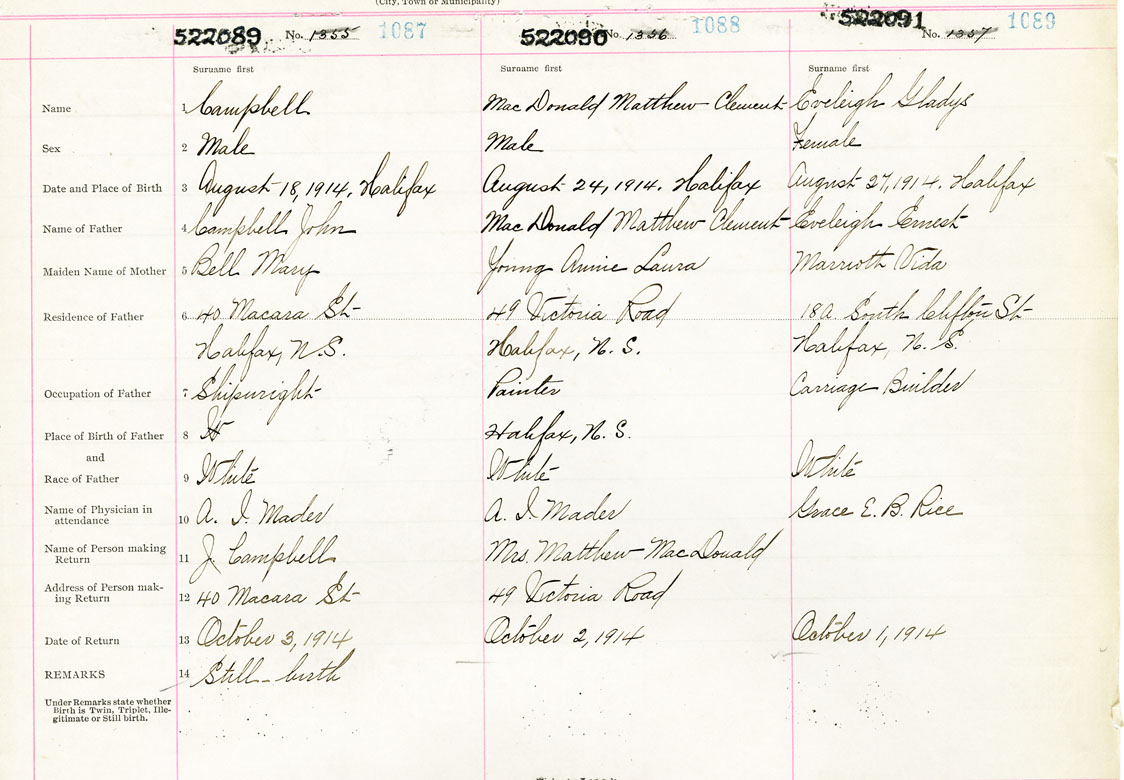 (City, Town or Municipality)
522089 No. 1355 1087 522090 No. 1356 1088 522091 No. 1357 1089
Surname first Surname first Surname first
Name 1 Campbell Mac Donald Matthew Clement Eveleigh Gladys
Sex 2 Male Male Female
Date and Place of Birth 3 August 18, 1914, Halifax August 24, 1914. Halifax August 27, 1914. Halifax
Name of Father 4 Campbell John Mac Donald Matthew Clement Eveleigh Ernest
Maiden Name of Mother 5 Bell Mary Young Annie Laura Marrioth Vida
Residence of Father 6 40 Macara St 49 Victoria Road 18A South Clifton St
Halifax, N.S. Halifax, N.S. Halifax, N.S.
Occupation of Father 7 Shipwright Painter Carriage Builder
Place of Birth of Father 8 Halifax, N.S.
and
Race of Father 9 White White White
Name of Physician in
attendance 10 A. I. Mader A. I. Mader Grace E. B. Rice
Name of Person making
Return 11 J. Campbell Mrs. Matthew MacDonald
Address of Person mak-
ing Return 12 40 Macara St 49 Victoria Road
Date of Return 13 October 3, 1914 October 2, 1914 October 1, 1914
REMARKS 14 Still-birth
Under Remarks state whether
Birth is Twin, Triplet, Ille-
gitimate or Still birth.